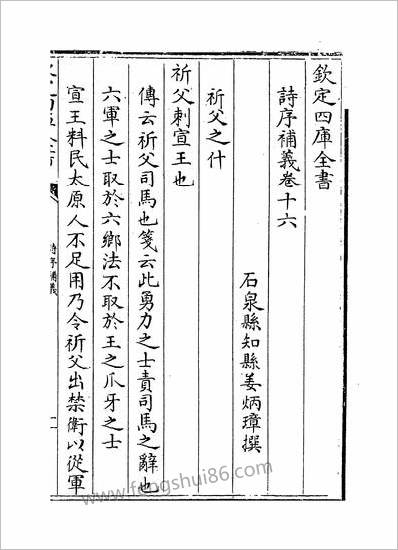 欽定四庫全書
詩序補義卷十六
石泉縣知縣姜炳璋撰
祈父之什
祈父刺宣王也
傳云祈父司馬也箋云此勇力之士責司馬之辭也
六軍之士取於六鄉法不取於王之爪牙之士
宣王料民太原人不足用乃令祈父出禁衛以從軍
詩序補義
www.fengshui86.com